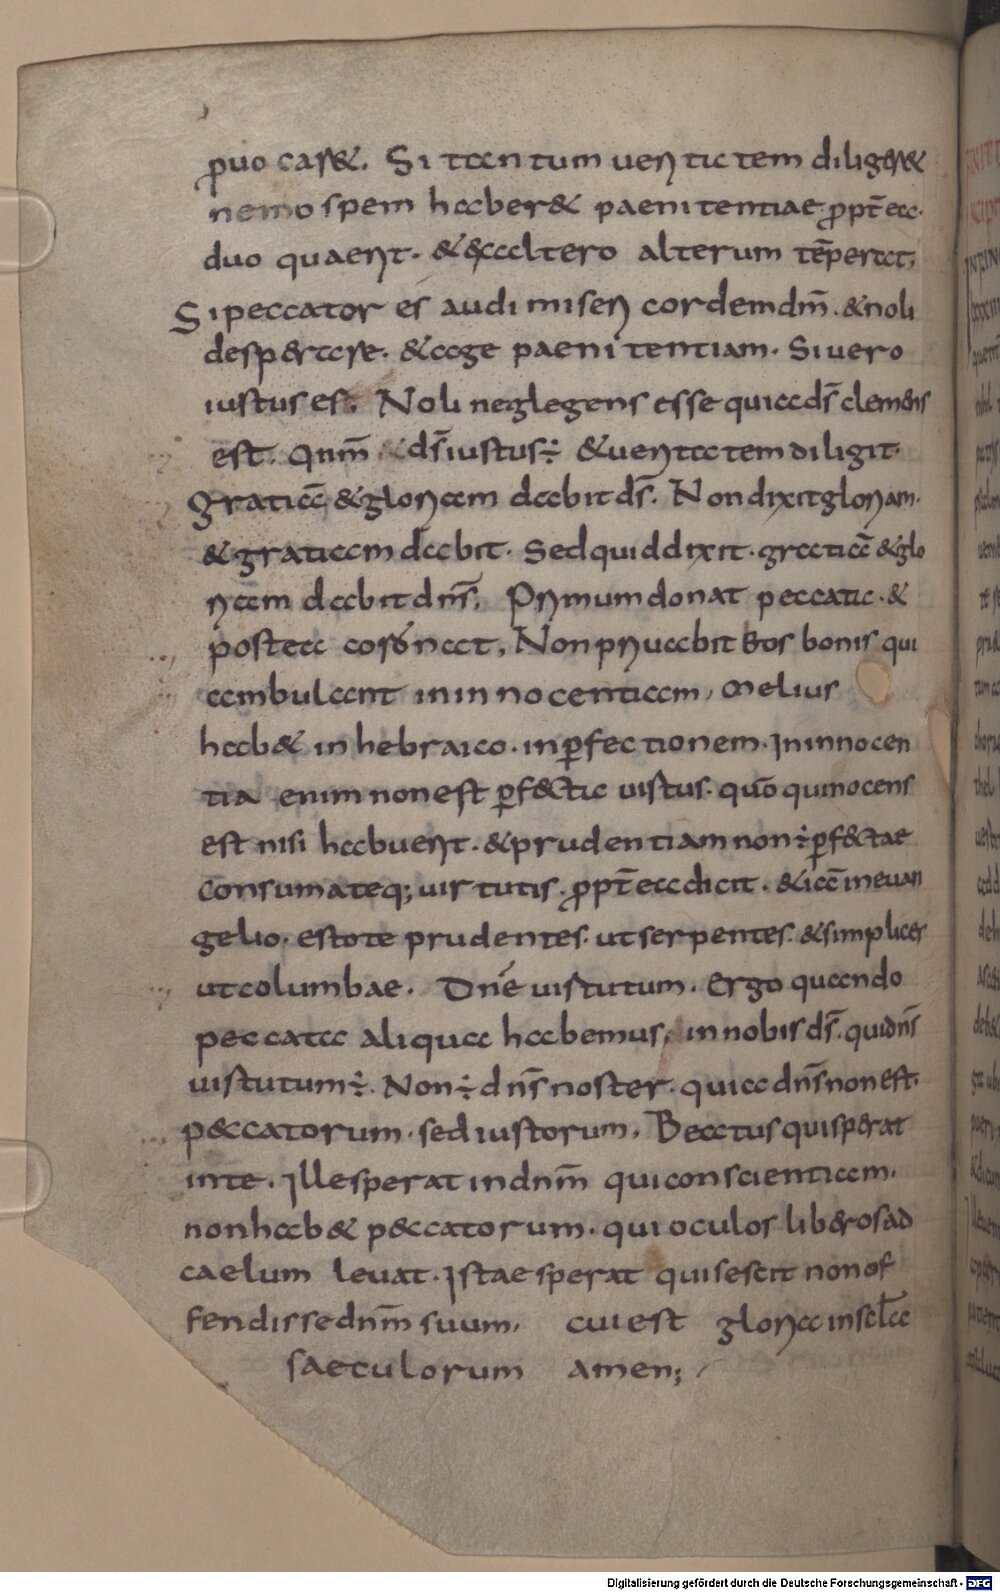 ꝓuocar&. Si tantum ueritatem diliger&
nemo spem haber& paenitentiae ꝓpt̄ ea
duo quaerit. & & altero alterum tēperat;
Si peccator es audi misericordem dm̄. & noli
desperare. & age paenitentiam. Si uero
iustus es; Noli neglegens esse quia ds̄ clemens
est. Qnm̄ ds̄ iustus ÷ & ueritatem diligit.
Gratiā & gloriam dabit ds̄. Non dixit gloriam.
& gratiam dabit. Sed quid dixit. gratiā & glo
riam dabit dns̄; Primum donat peccata. &
postea coronat, Non priuabit eos bonis qui
ambulant in innocentiam, Melius
hab& in hebraico. in ꝑfectionem. In innocen
tia enim non est ꝑf&ta uirtus. quō qui nocens
est nisi habuerit. & prudentiam non ÷ ꝑf&tae
consumateq; uirtutis. ꝓpt̄ ea dicit. & iā in euan
gelio. estote prudentes. ut serpentes. & simplices
ut columbae. Dnē uirtutum. Ergo quando
peccata aliqua habemus, in nobis ds̄. qui dns̄
uirtutum ÷. Non ÷ dns̄ noster. quia dns̄ non est.
peccatorum. sed iustorum. Beatus qui sperat
in te. Ille sperat in dnm̄ qui conscientiam.
non hab& peccatorum. qui oculos liberos ad
caelum leuat. Istae sperat qui se scit non of
fendisse dnm̄ suum. cui est gloria in sclā
saeculorum amen;
Digitalisierung gefördert durch die Deutsche Forschungsgemeinschaft - DFG